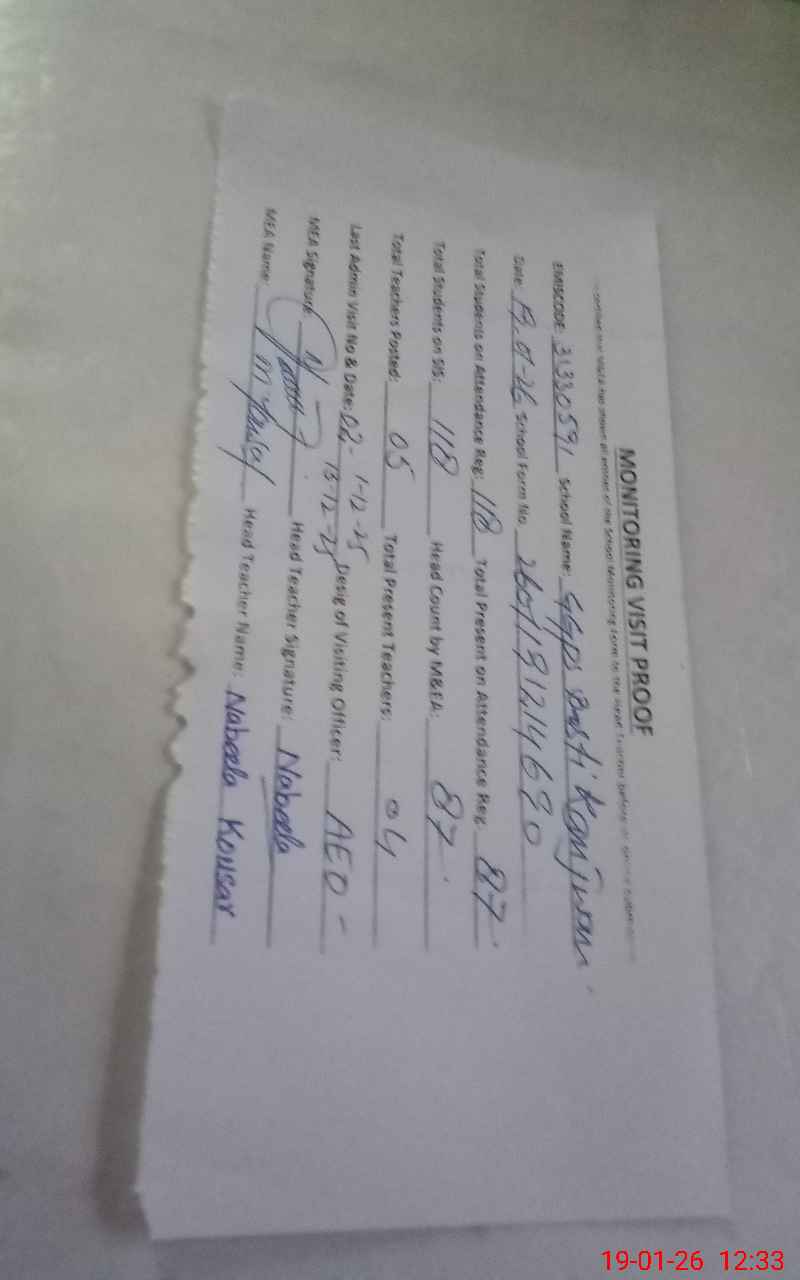 MONITORING VISIT PROOF
EMISCODE: 31330591 School Name: GGPS Basti Kanjwani
Date: 19-01-26 School Form No. 2601191214680
Total Students on Attendance Reg: 118 Total Present on Attendance Reg. 87
Total Students on SIS: 118 Head Count by M&EA: 87
Total Teachers Posted: 05 Total Present Teachers: 04
Last Admin Visit No & Date: 02- 1-12-25 13-12-25 Desig of Visiting Officer: AEO -
MEA Signature: Head Teacher Signature: Nabeela
MEA Name: Head Teacher Name: Nabeela Kousar
19-01-26 12:33